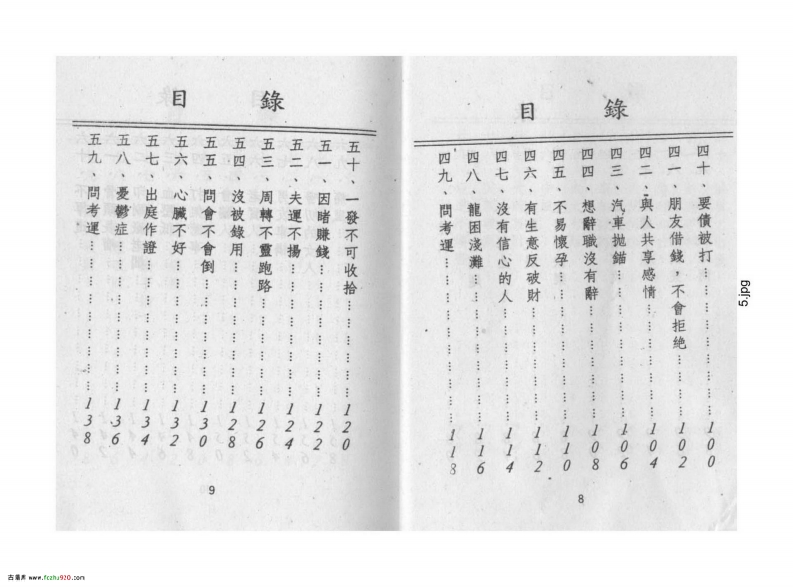 目錄
四十、要債被打……………………100
四一、朋友借錢，不會拒絕………102
四二、與人共享感情………………104
四三、汽車拋錨……………………106
四四、想辭職沒有辭………………108
四五、不易懷孕……………………110
四六、有生意反破財………………112
四七、沒有信心的人………………114
四八、龍困淺灘……………………116
四九、問考運………………………118
8
目錄
五十、一發不可收拾………………120
五一、因賭賺錢……………………122
五二、夫運不揚……………………124
五三、周轉不靈跑路………………126
五四、沒被錄用……………………128
五五、問會不會倒…………………130
五六、心臟不好……………………132
五七、出庭作證……………………134
五八、憂鬱症………………………136
五九、問考運………………………138
9
5.jpg
www.fczhu920.com